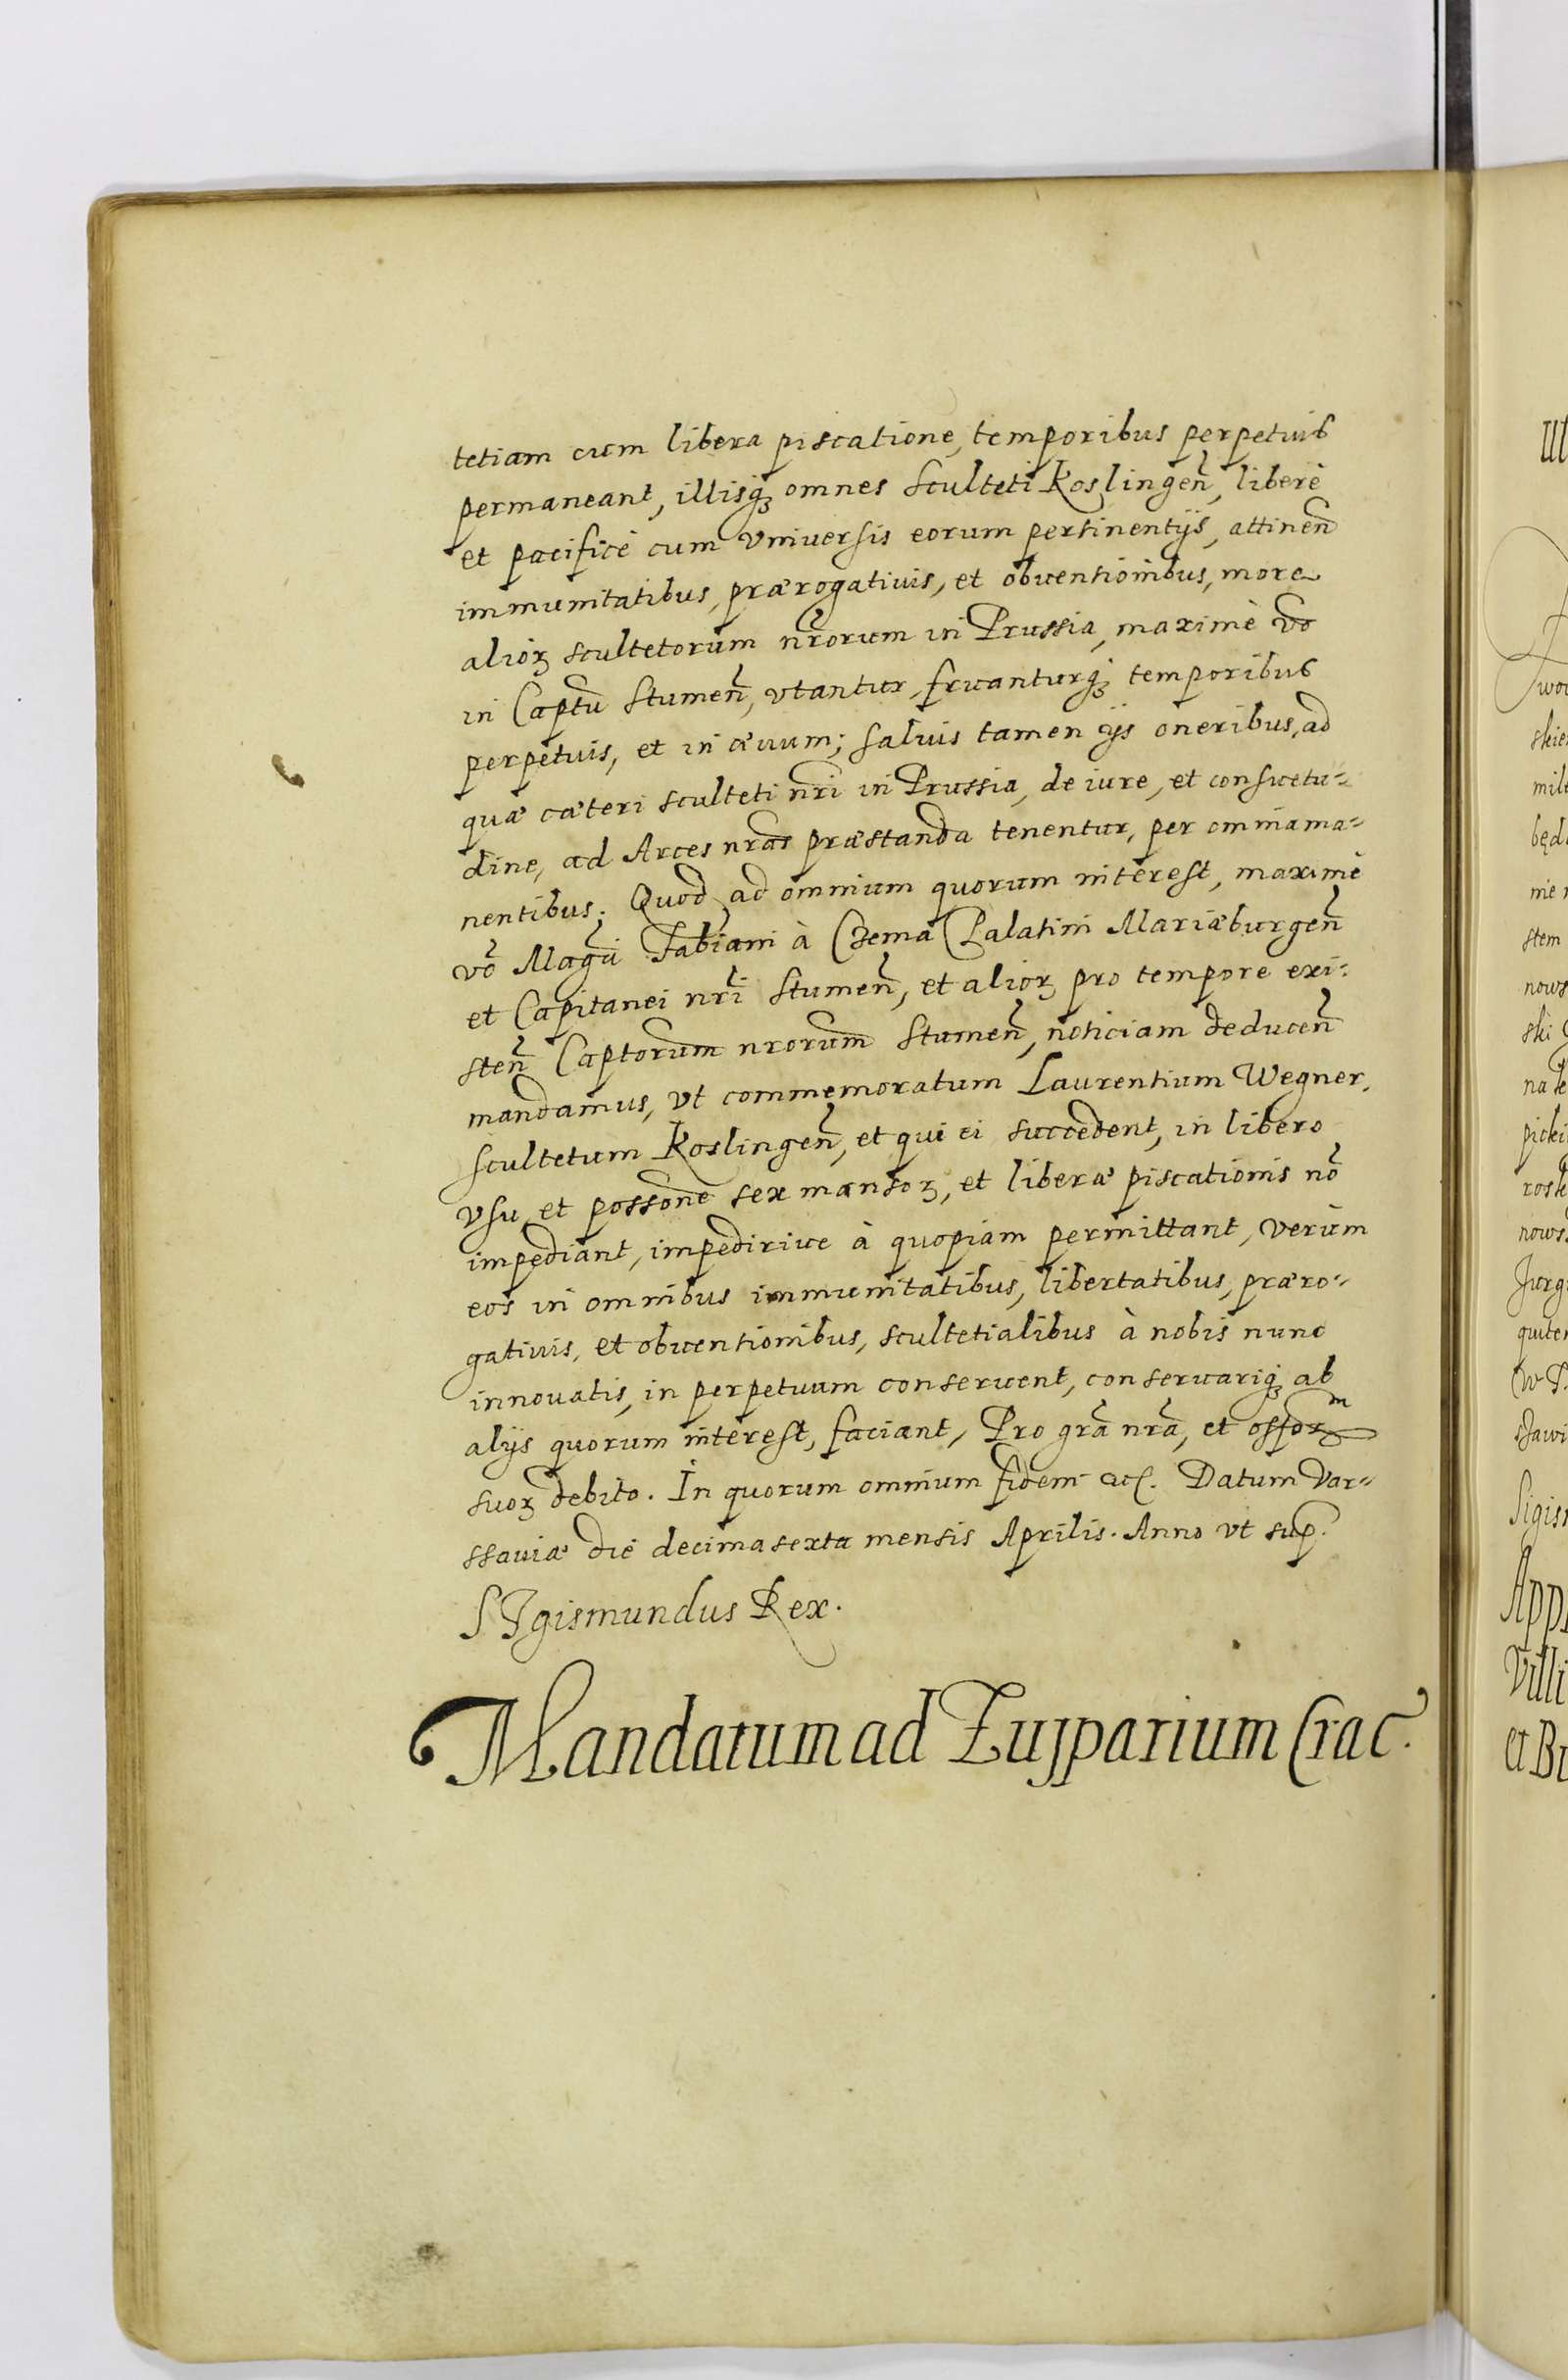 tetiam cum libera piscatione, temporibus perpetuis
permaneant, illisq₃ omnes Sculteti Koslingeñ, liberè
et pacificè cum vniuersis eorum pertinentijs, attineñ
immunitatibus, prærogatiuis, et obuentionibus, more
alioꝝ scultetorum nr̃orum in Prussia, maximè vo
in Captu Stumeñ, vtantur, fruanturq₃ temporibus
perpetuis, et in æuum; saluis tamen ijs oneribus, ad
quæ cæteri sculteti nr̃i in Prussia, de iure, et consuetu=
dine, ad Arces nr̃as præstanda tenentur, per omnia ma=
nentibus. Quod ad omnium quorum interest, maximè
võ Magci Fabiani à Czema Palatini Mariæburgeñ
et Capitanei nr̃i Stumeñ, et alioꝝ pro tempore exi=
steñ Captorum nrorum Stumeñ, noticiam deduceñ
mandamus, vt commemoratum Laurentium Wegner,
scultetum Koslingeñ, et qui ei succedent, in libero
vsu et possone sex mansoꝝ, et liberæ piscationis nõ
impediant, impediriue à quopiam permittant, verùm
eos in omnibus immunitatibus, libertatibus, præro=
gatiuis, et obuentionibus, scultetialibus à nobis nunc
innouatis, in perpetuum conseruent, conseruariq₃ ab
alijs quorum interest, faciant, Pro gr̃a nr̃a, et
suoꝝ debito. In quorum omnium fidem etc. Datum Var=
ssauiæ die decima sexta mensis Aprilis. Anno vt sup.
SIgismundus Rex.
Mandatum ad Zupparium Crac.